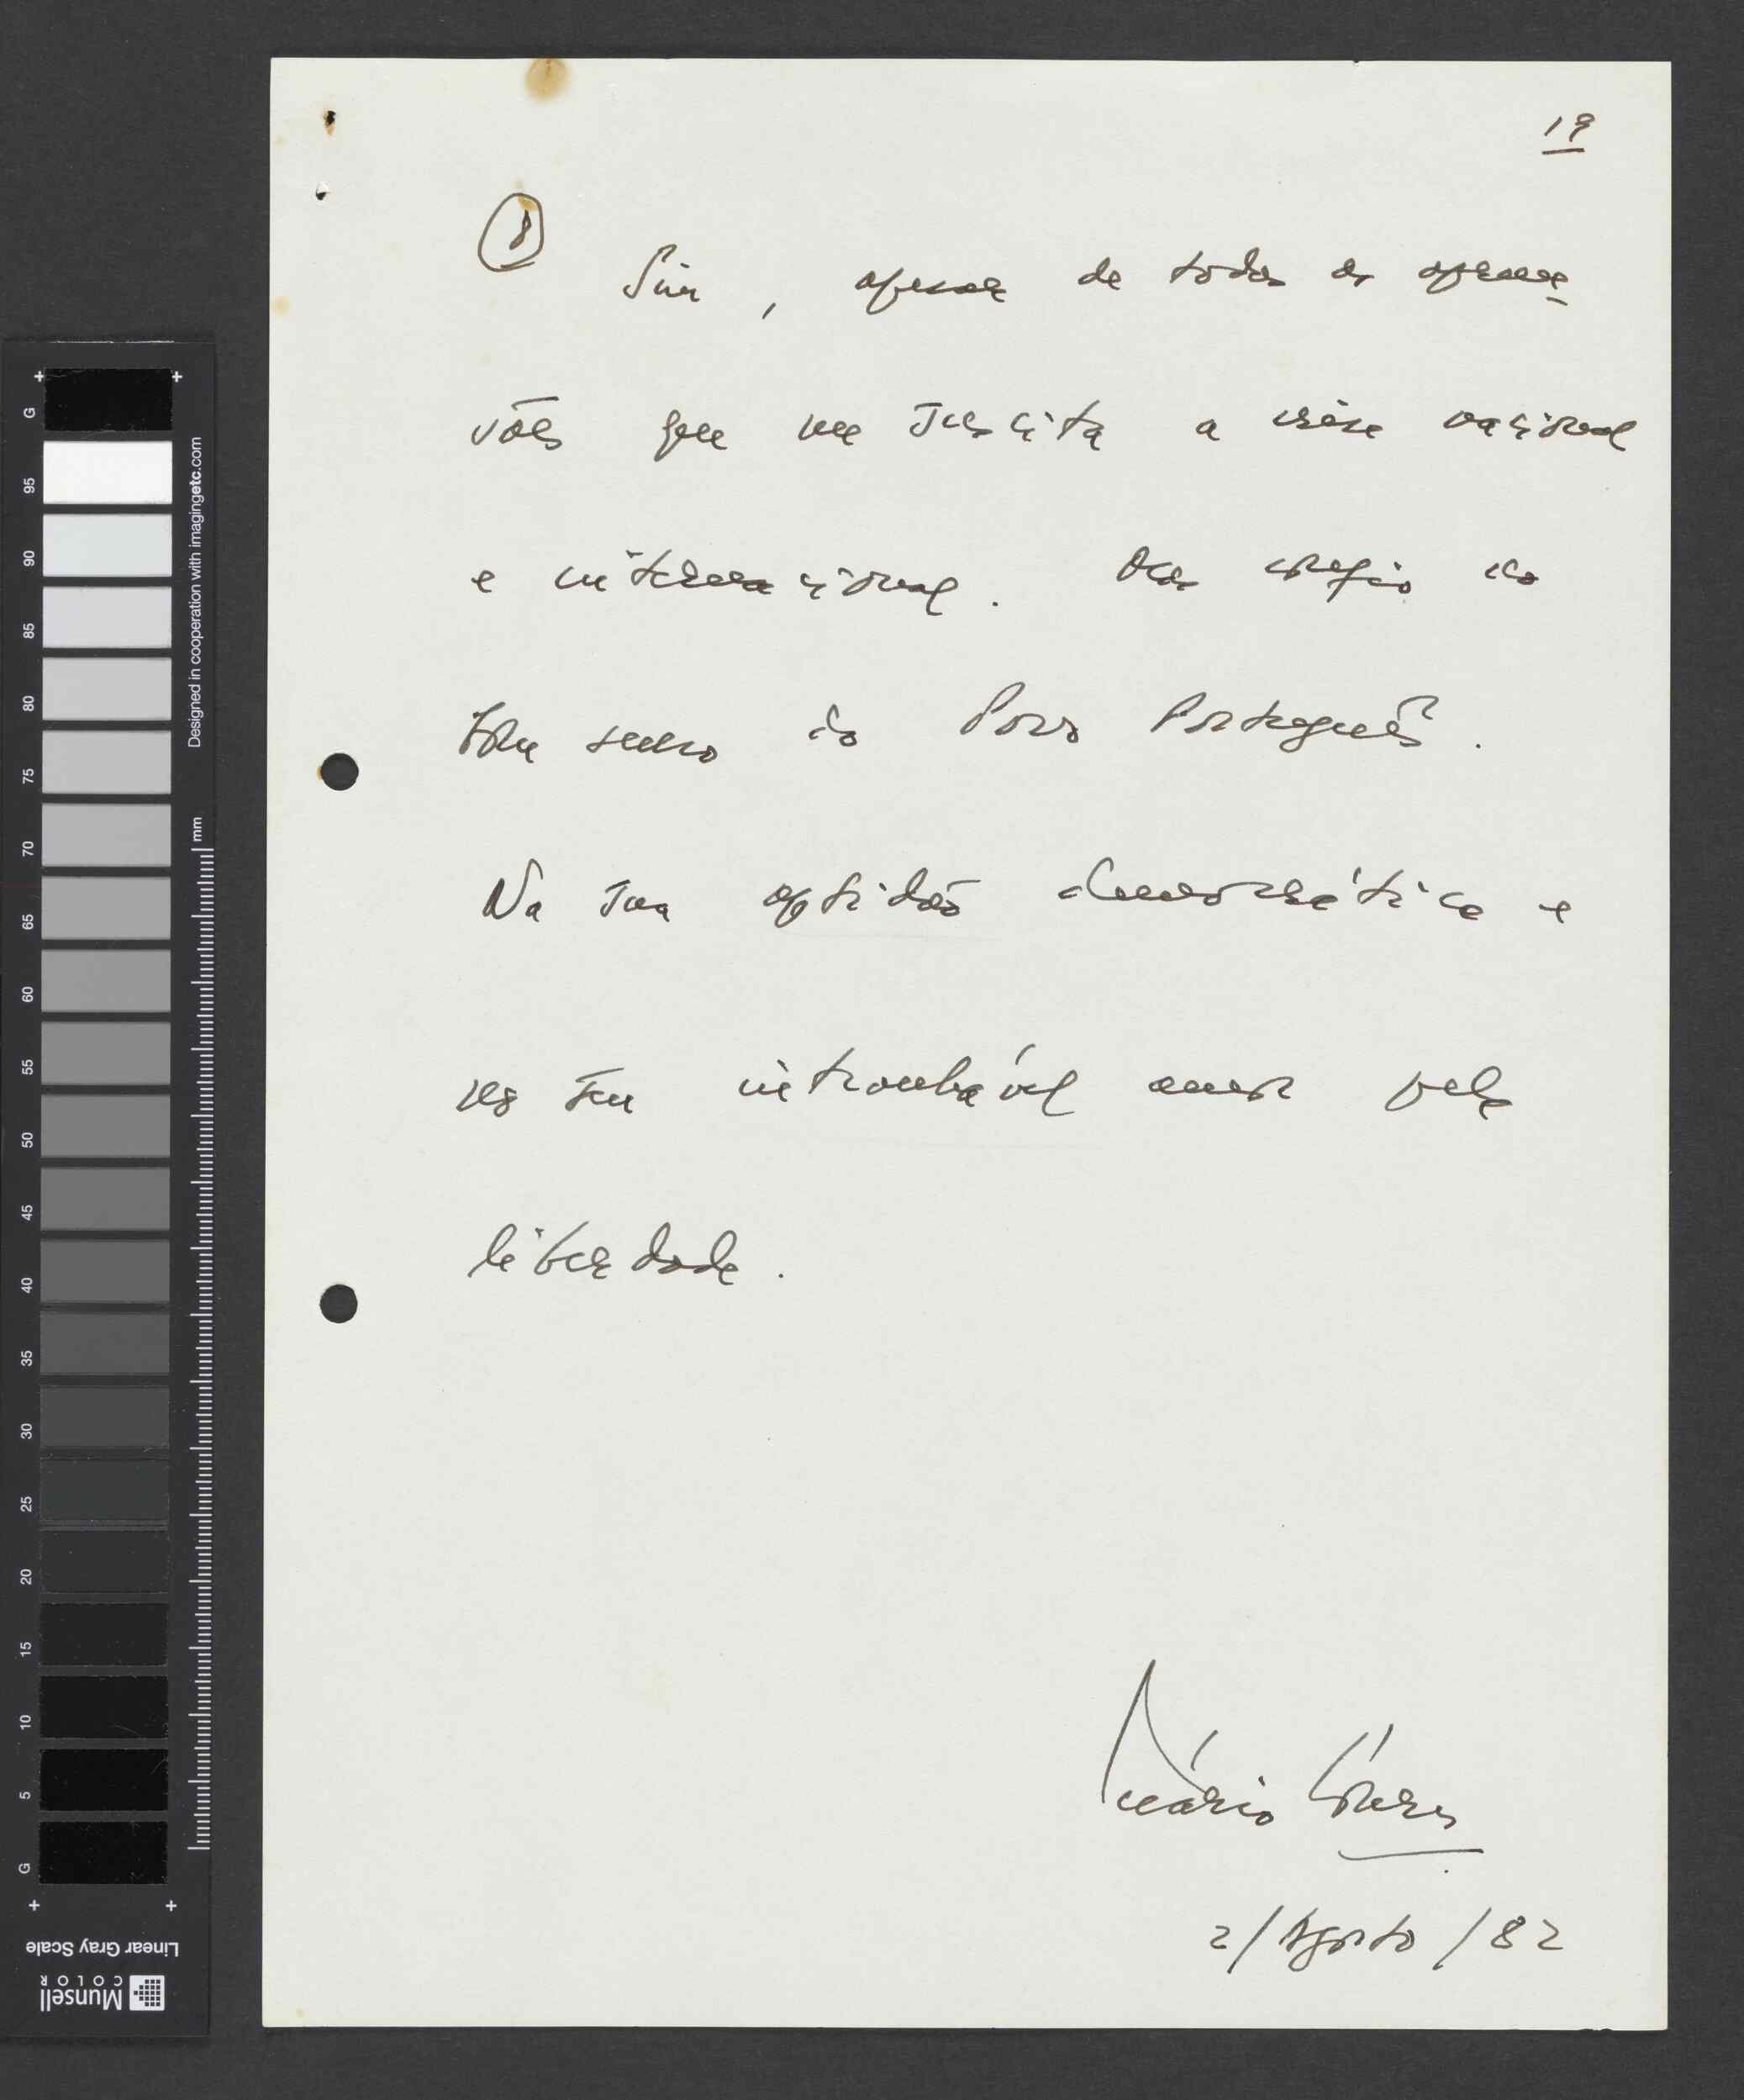 19
8
Sim, apesar de todas as apreen-
sões que me suscita a crise nacional
e internacional. Mas confio no
bom senso do Povo Português.
Na sua aptidão democrática e
no seu entranhável amor pela
liberdade.
Mário Soares
2/Agosto/82
G
95
90
85
80
75
70
65
60
55
50
45
40
35
30
25
20
15
10
5
G
Designed in cooperation with imagingetc.com
mm
Linear Gray Scale
Munsell
COLOR